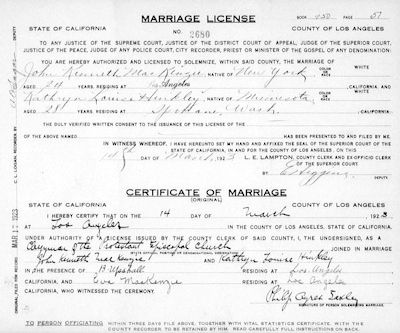 MARRIAGE LICENSE
BOOK 350 PAGE 51
STATE OF CALIFORNIA
No. 2680
COUNTY OF LOS ANGELES
TO ANY JUSTICE OF THE SUPREME COURT, JUSTICE OF THE DISTRICT COURT OF APPEAL, JUDGE OF THE SUPERIOR COURT,
JUSTICE OF THE PEACE, JUDGE OF ANY POLICE COURT, CITY RECORDER, PRIEST OR MINISTER OF THE GOSPEL OF ANY DENOMINATION:
YOU ARE HEREBY AUTHORIZED AND LICENSED TO SOLEMNIZE, WITHIN SAID COUNTY, THE MARRIAGE OF
John Kenneth MacKenzie NATIVE OF New York COLOR OR RACE WHITE
AGED 24 YEARS RESIDING AT Los Angeles , CALIFORNIA AND
Kathryn Louise Hinkley NATIVE OF Minnesota COLOR OR RACE WHITE
AGED 21 YEARS RESIDING AT Spokane, Wash. , CALIFORNIA
THE DULY VERIFIED WRITTEN CONSENT TO THE ISSUANCE OF THIS LICENSE OF THE
OF THE ABOVE NAMED HAS BEEN PRESENTED TO AND FILED BY ME.
IN WITNESS WHEREOF, I HAVE HEREUNTO SET MY HAND AND AFFIXED THE SEAL OF THE SUPERIOR COURT OF THE
STATE OF CALIFORNIA, IN AND FOR THE COUNTY OF LOS ANGELES, ON THIS
DAY OF March, 1923 L. E. LAMPTON, COUNTY CLERK AND EX-OFFICIO CLERK
OF THE SUPERIOR COURT
BY Higgins
DEPUTY
CERTIFICATE OF MARRIAGE
(ORIGINAL)
STATE OF CALIFORNIA
COUNTY OF LOS ANGELES
I HEREBY CERTIFY THAT ON THE 14 DAY OF March 1923
AT Los Angeles IN THE COUNTY OF LOS ANGELES, STATE OF CALIFORNIA,
UNDER AUTHORITY OF A LICENSE ISSUED BY THE COUNTY CLERK OF SAID COUNTY, I, THE UNDERSIGNED, AS A
Clergyman of the Protestant Episcopal Church JOINED IN MARRIAGE
John Kenneth MacKenzie AND Kathryn Louise Hinkley
IN THE PRESENCE OF RESIDING AT Los Angeles
CALIFORNIA AND Eva MacKenzie RESIDING AT Los Angeles
CALIFORNIA, WHO WITNESSED THE CEREMONY.
Philip Ayres Easley
SIGNATURE OF PERSON SOLEMNIZING MARRIAGE.
TO PERSON OFFICIATING: WITHIN THREE DAYS FILE ABOVE, TOGETHER WITH VITAL STATISTICS CERTIFICATE, WITH THE
COUNTY RECORDER TO BE RETAINED BY HIM. READ CAREFULLY FULL INSTRUCTIONS ON BACK.